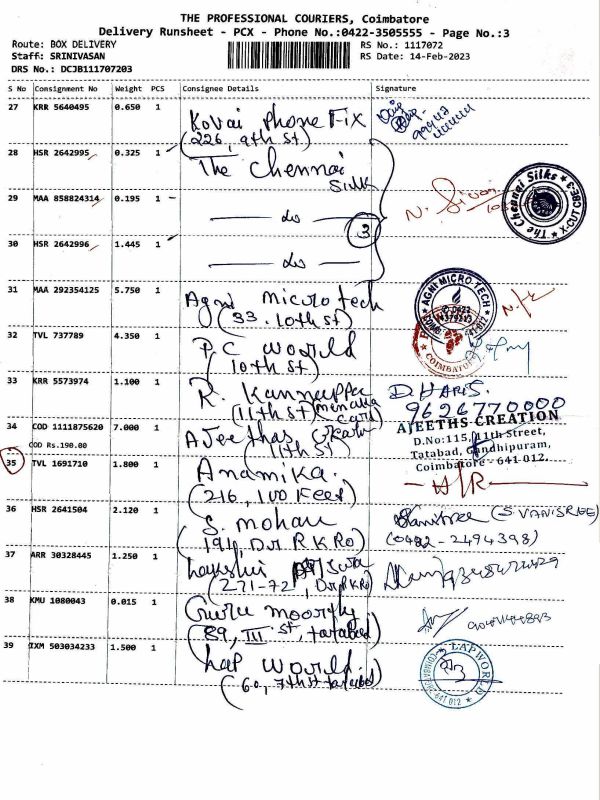 THE PROFESSIONAL COURIERS, Coimbatore
Delivery Runsheet - PCX - Phone No.:0422-3505555 - Page No.:3
Route: BOX DELIVERY
RS No.: 1117072
Staff: SRINIVASAN
RS Date: 14-Feb-2023
DRS No.: DCJB111707203
S No Consignment No Weight PCS Consignee Details Signature
27 KRR 5640495 0.650 1
Kovai Phone Fix
(226, 9th st)
28 HSR 2642995 0.325 1
The Chennai
Silk
29 MAA 858824314 0.195 1
do
N. Sivai
The Chennai Silks
X-CUT CBE-3
30 HSR 2642996 1.445 1
do
3
31 MAA 292354125 5.750 1
Agni microtech
(33, 10th st)
AGNI MICRO TECH
32 TVL 737789 4.350 1
PC World
(10th st)
COIMBATORE
33 KRR 5573974 1.100 1
R. Kannappa
(11th st)
D. HARIS.
9626770000
34 COD 1111875620 7.000 1
COD Rs.190.00
Ajeethas
(11th st)
AJEETHS CREATION
D.No:115, 11th Street,
Tatabad, Gandhipuram,
Coimbatore - 641 012.
35 TVL 1691710 1.800 1
Anamika.
(216, 100 Feet)
36 HSR 2641504 2.120 1
S. mohan
(191, Dr R K Ro)
(S. VANISREE)
(0422-2494398)
37 ARR 30328445 1.250 1
(271-72, Dr R K Ro)
38 KMU 1080043 0.015 1
Guru moorthy
(89, III st, tatabad)
39 IXM 503034233 1.500 1
Lap World
(60, 7th st tatabad)
LAP WORLD
COIMBATORE-641 012